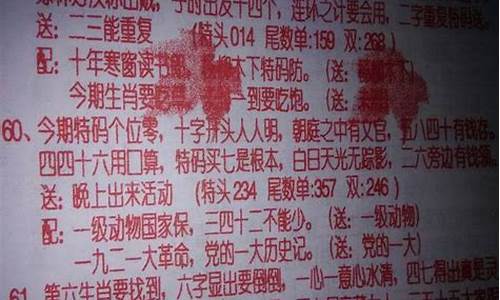 子时出发十四个，连环之计要会用，二字重复特码现
送：二三能重复　(特头014 尾数单:159 双:268 )
配：十年寒窗读书 木下特码防。(送：
今期生肖要吃 一到要吃饱。(送：
60、今期特码个位零，十字开头人人明，朝庭之中有文官，五八四十有钱存，
四四十六用口算，特码买七是根本，白日天光无踪影，二六旁边有钱领
送：晚上出来活动　(特头234 尾数单:357 双:246 )
配：一级动物国家保，三四十二不能少。(送：一级动物)
一九二一大革命，党的一大历史记。(送：党的一大)
61、第六生肖要找到，六字显出要倒倒，一心一意心水清，四七得出